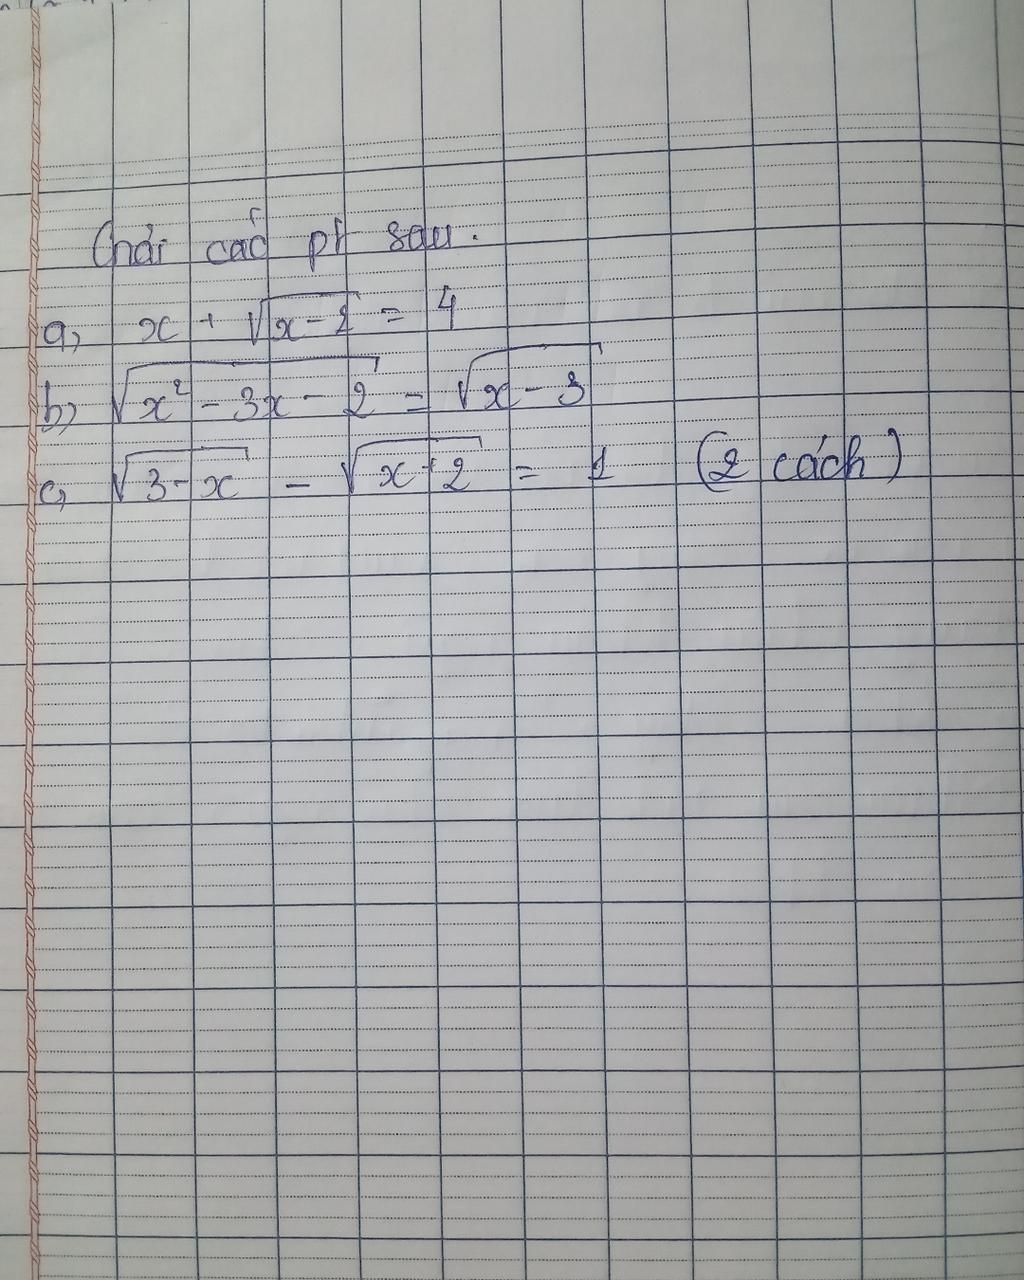 Giải các pt sau.
a, x + √(x-2) = 4
b, √(x² - 3x - 2) = √(x - 3)
c, √(3-x) - √(x+2) = 1 (2 cách)